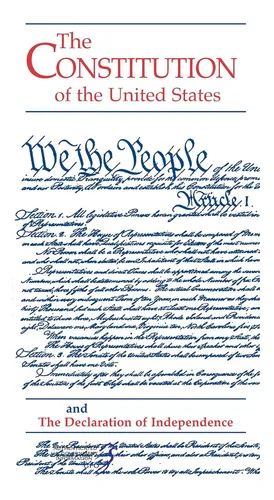 The
CONSTITUTION
of the United States
We the People of the Un
insure domestic Tranquility, provide for the common defence, prom
and our Posterity, do ordain and establish this Constitution for the
Article. I.
Section. 1. All legislative Powers herein granted shall be vested in
of Representatives.
Section. 2. The House of Representatives shall be composed of Mem
in each State shall have Qualifications requisite for Electors of the most
No Person shall be a Representative who shall not have attained
and who shall not, when elected, be an Inhabitant of that State in which
Representatives and direct Taxes shall be apportioned among the
Number, which shall be determined by adding to the whole Number of free
and within every subsequent Term of ten Years, in such Manner as they
thirty Thousand, but each State shall have at Least one Representative
entitled to chuse three, Massachusetts eight, Rhode Island and Providence
eight, Delaware one, Maryland six, Virginia ten, North Carolina five
When vacancies happen in the Representation from any State, the
The House of Representatives shall chuse their Speaker and other
Section. 3. The Senate of the United States shall be composed of two
Senator shall have one Vote.
Immediately after they shall be assembled in Consequence of the
of the Senators of the first Class shall be vacated at the Expiration of the
and
The Declaration of Independence
The Vice President of the United States shall be President of the Senate
The Senate shall chuse their other Officers, and also a President pro
President of the United States.
The Senate shall have the sole Power to try all Impeachments.